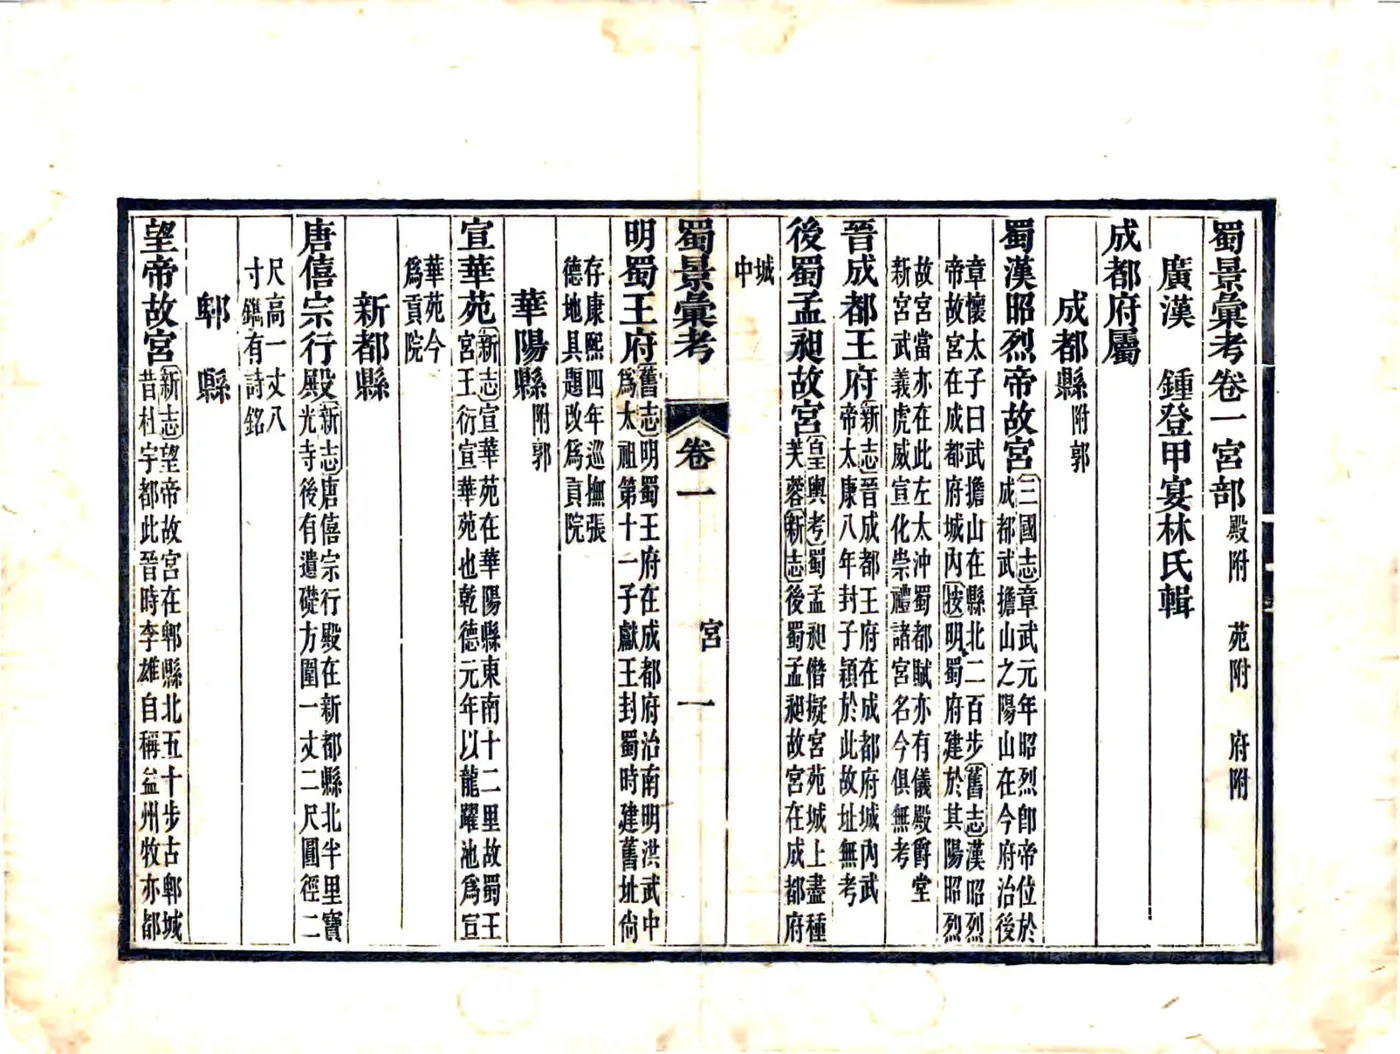 蜀景彙考卷一宮部 殿附 苑附 府附
廣漢 鍾登甲宴林氏輯
成都府屬
成都縣附郭
蜀漢昭烈帝故宮三國志章武元年昭烈卽帝位於
成都武擔山之陽山在今府治後
章懷太子曰武擔山在縣北二百步舊志漢昭烈
帝故宮在成都府城內按明蜀府建於其陽昭烈
故宮當亦在此左太沖蜀都賦亦有儀殿爵堂
新宮武義虎威宣化崇禮諸宮名今俱無考
晉成都王府新志晉成都王府在成都府城內武
帝太康八年封子穎於此故址無考
後蜀孟昶故宮皇輿考蜀孟昶僭擬宮苑城上盡種
芙蓉新志後蜀孟昶故宮在成都府
城
中
蜀景彙考 卷一 宮 一
明蜀王府舊志明蜀王府在成都府治南明洪武中
爲太祖第十一子獻王封蜀時建舊址尙
存康熙四年巡撫張
德地具題改爲貢院
華陽縣附郭
宣華苑新志宣華苑在華陽縣東南十二里故蜀王
宮王衍宣華苑也乾德元年以龍躍池爲宣
華苑今
爲貢院
新都縣
唐僖宗行殿新志唐僖宗行殿在新都縣北半里寶
光寺後有遺礎方圍一丈二尺圓徑二
尺高一丈八
寸鐫有詩銘
郫縣
望帝故宮新志望帝故宮在郫縣北五十步古郫城
昔杜宇都此晉時李雄自稱益州牧亦都